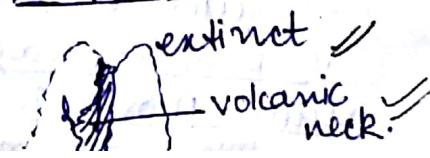 extinct
volcanic
neck.